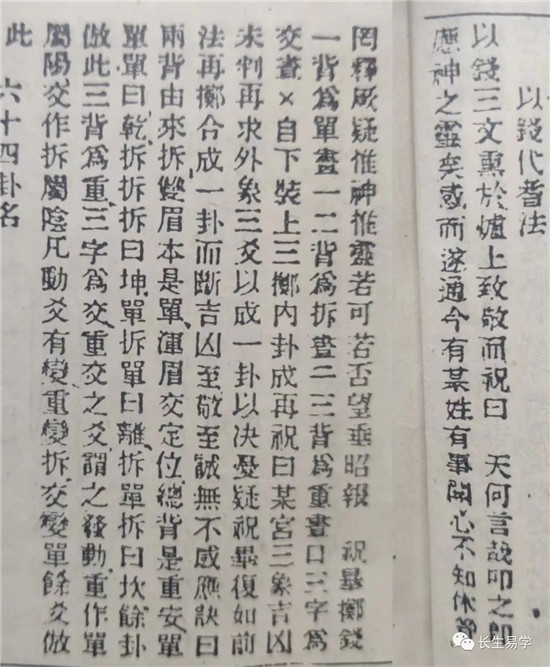 以錢代蓍法
以錢三文熏於爐上致敬而祝曰　天何言哉叩之即
應神之靈矣感而遂通今有某姓有事關心不知休咎
罔釋厥疑惟神惟靈若可若否望垂昭報　祝畢擲錢
一背爲單畫一二背爲拆畫二三背爲重畫口三字爲
交畫×自下裝上三擲內卦成再祝曰某宮三象吉凶
未判再求外象三爻以成一卦以决憂疑祝畢復如前
法再擲合成一卦而斷吉凶至敬至誠無不感應訣曰
兩背由來拆雙眉本是單渾眉交定位總背是重安單
單單曰乾拆拆拆曰坤單拆單曰離拆單拆曰坎餘卦
倣此三背爲重三字爲交重交之爻謂之發動重作單
屬陽交作拆屬陰凡動爻有變重變拆交變單餘爻倣
此　六十四卦名
长生易学